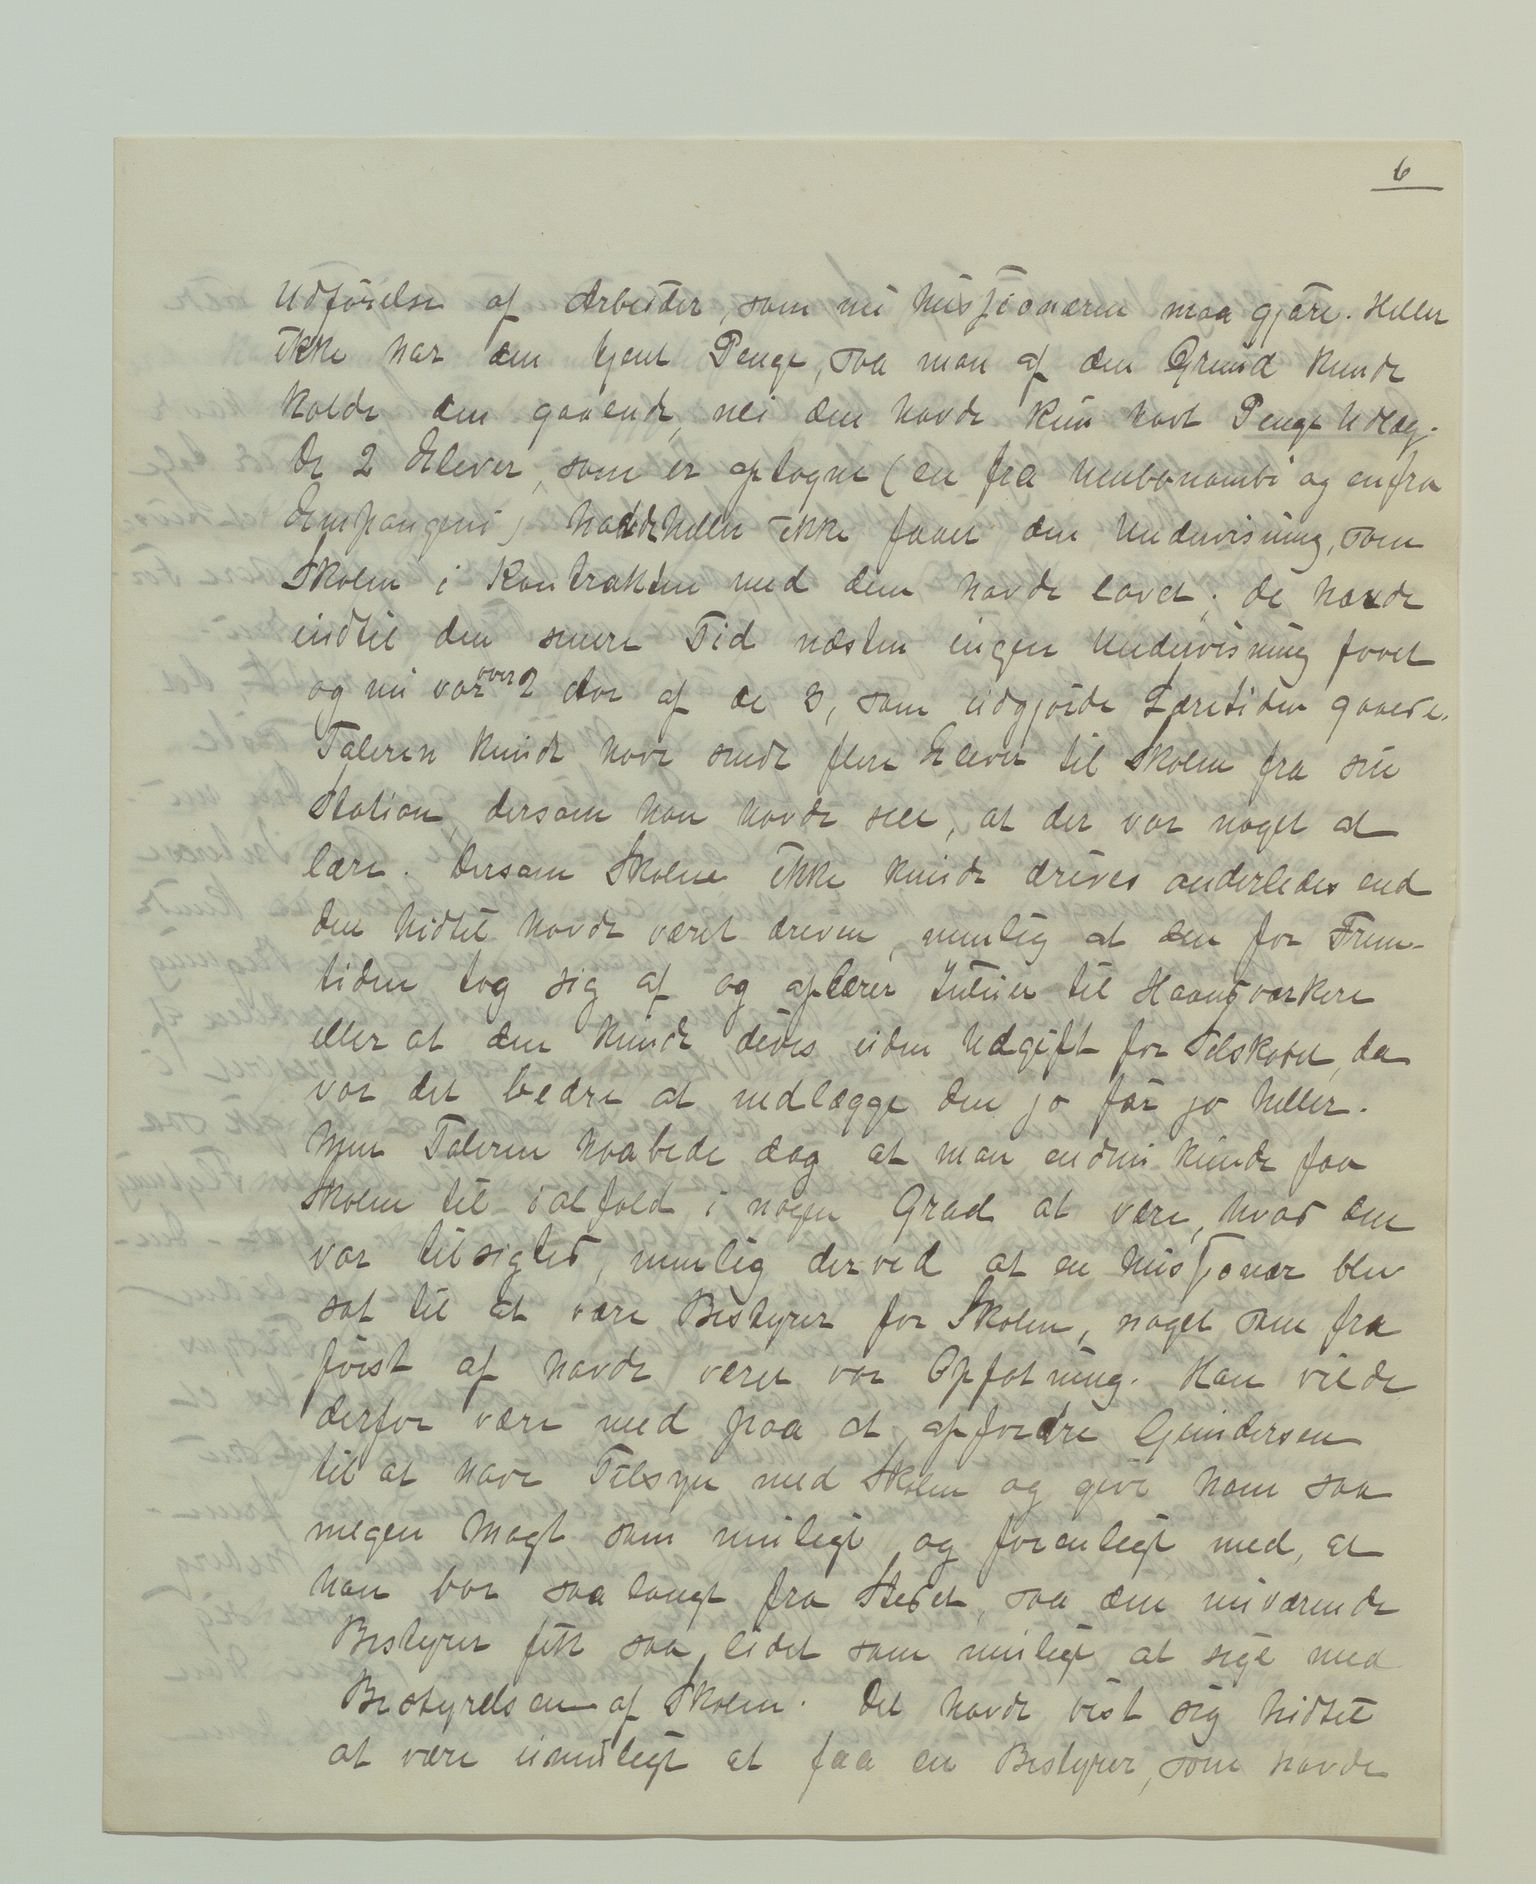 6
Udførelse af Arbeider, som nu Missionæren maa gjøre. Heller
ikke har den tjent Penge, saa man af den Grund kunde
kalde den gaaende, nei den havde kun havt Penge Udlæg.
De 2 Elever, som er optagne (en fra Umbonambi og en fra
Empangeni) havde heller ikke faaet den Undervisning, som
Skolen i Kontrakten med dem havde lovet; de havde
indtil den senere Tid næsten ingen Undervisning faaet
og nu var over 2 Aar af de 3, som udgjorde Læretiden gaaede.
Taleren kunde have sendt flere Elever til Skolen fra sin
Station, dersom han havde seet, at der var noget at
lære. Dersom Skolene ikke kunde drives anderledes end
den hidtil havde været dreven, nemlig at den for Frem-
tiden tog sig af og oplærer Zuluer til Haandværkere
eller at den kunde drives uden Udgift for Selskabet, da
var det bedre at nedlægge den jo før jo heller.
Men Taleren haabede dog at man endnu kunde faa
Skolen til ialfald i nogen Grad at være, hvad den
var tilsigted, nemlig derved at en Missionær blev
sat til at være Bestyrer for Skolen, noget som fra
først af havde været vor Opfatning. Han vilde
derfor være med paa at opfordre Gundersen
til at have Tilsyn med Skolen og give ham saa
megen Magt som muligt og forenligt med, at
han bor saa langt fra Stedet, saa den nuværende
Bestyrer fik saa lidet som muligt at sige med
Bestyrelsen af Skolen. Det havde vist sig hidtil
at være umuligt at faa en Bestyrer, som havde